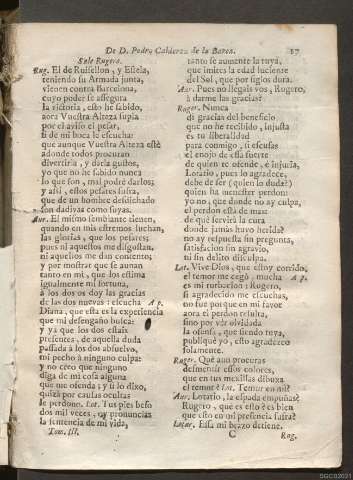 De D. Pedro Calderon de la Barca.
17
Sale Rugero.
Rug. El de Ruisellon, y Estela,
teniendo su Armada junta,
vienen contra Barcelona,
cuyo poder se assegura
la victoria, esto he sabido,
aora Vuestra Alteza supla
por el aviso el pesar,
si de mi boca le escucha:
que aunque Vuestra Alteza estè
adonde todos procuran
divertirla, y darla gustos,
yo que no he sabido nunca
lo que son, mal podrè darlos;
y assi, estos pesares sufra,
que de un hombre desdichado
son dadivas como suyas.
Aur. El mismo semblante tienen,
quando en mis estremos luchan,
las glorias, que los pesares,
pues ni aquellos me disgustan,
ni aquellos me dan contento;
y por mostrar que se aunan
tanto en mi, que dos estima
igualmente mi fortuna,
à los dos os doy las gracias
de las dos nuevas: escucha A p.
Diana, que esta es la experiencia
que mi desengaño busca:
y ya que los dos estais
presentes, de aquella duda
passada à los dos absuelvo,
mi pecho à ninguno culpa:
y no creo que ninguno
diga de mi cosa alguna
que me ofenda; y si lo dixo,
quizà por causas ocultas
le perdono. Lot. Tus pies beso
dos mil veces, oy pronuncias
la sentencia de mi vida,
Tom. III.
tanto se aumente la tuya,
que imites la edad luciente
del Sol, que por siglos dura.
Aur. Pues no llegais vos, Rugero,
à darme las gracias?
Ruger. Nunca
di gracias del beneficio
que no he recibido, injusta
es tu liberalidad
para conmigo, si escusas
el enojo de essa suerte
de quien te ofende, è injuria,
Lotario, pues lo agradece,
debe de ser (quien lo duda?)
quien ha menester perdon;
yo no, que donde no ay culpa,
el perdon està de mas:
de què servirà la cura
donde jamàs huvo herida?
no ay respuesta sin pregunta,
satisfacion sin agravio,
ni sin delito disculpa.
Lot. Vive Dios, que estoy corrido,
el temor me cegò, mucha A p.
es mi turbacion: Rugero,
si agradecido me escuchas,
no fue porque en mi favor
aora el perdon resulta,
sino por vèr olvidada
la ofensa, que siendo tuya,
publiquè yo, esto agradezco
solamente.
Ruger. Què aun procuras
desmentir essos colores,
que en tus mexillas dibuxa
el temor? Lot. Temor en mi?
Aur. Lotario, la espada empuñas?
Rugero, què es esto? es bien
que esto en mi presencia sufra?
Lotar. Essa mi brazo detiene.
C
Rug.